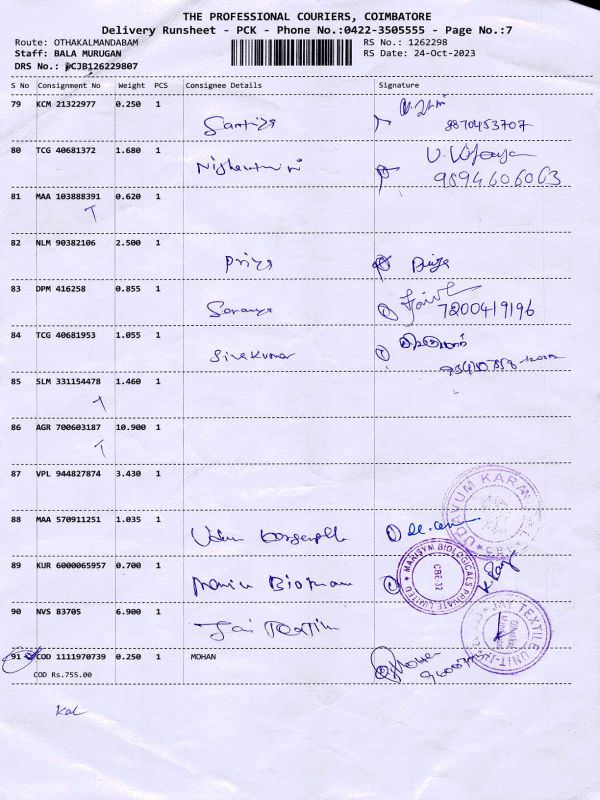 THE PROFESSIONAL COURIERS, COIMBATORE
Delivery Runsheet - PCK - Phone No.:0422-3505555 - Page No.:7
Route: OTHAKALMANDABAM RS No.: 1262298
Staff: BALA MURUGAN RS Date: 24-Oct-2023
DRS No.: PCJB126229807
S No Consignment No Weight PCS Consignee Details Signature
79 KCM 21322977 0.250 1
8870453707
80 TCG 40681372 1.680 1
9894606063
81 MAA 103888391 0.620 1
T
82 NLM 90382106 2.500 1
Priya Priya
83 DPM 416258 0.855 1
Saranya 7200419196
84 TCG 40681953 1.055 1
Sivakumar
85 SLM 331154478 1.460 1
T
86 AGR 700603187 10.900 1
T
87 VPL 944827874 3.430 1
UDAYUM KARAN
88 MAA 570911251 1.035 1
89 KUR 6000065957 0.700 1
MARISYM BIOLOGICALS PRIVATE LIMITED
CBE-32
90 NVS 83705 6.900 1
Jai Textile
JAY TEXTILE UNIT-II
91 COD 1111970739 0.250 1 MOHAN
COD Rs.755.00